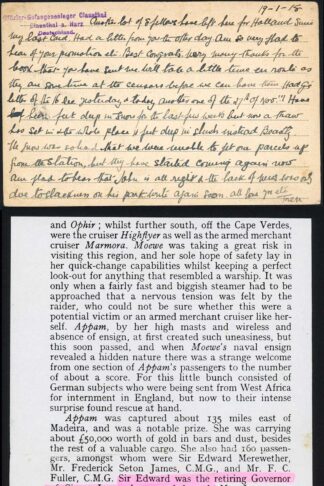 Offizier-Gefangenenlager Clausthal
Clausthal a. Harz.
Deutschland.
19-1-18
Another lot of fellows have left here for Holland since
my last card. Had a letter from you the other day. Am so very glad to
hear of your promotion etc. Best Congrats. Very many thanks for the
book that you have sent. We will take a little time en route as
they are some time at the censors before we can have them. Had yr
letter of the yesterday & they another one of the of Nov.
been feet deep in snow for the last few weeks but now a thaw
has set in & the whole place is feet deep in slush instead.
the snow was so bad that we were unable to get our parcels up
from the station, but they have started coming again now
Am glad to hear that John is all right & the
due to on his part write again soon. all love
and Ophir; whilst further south, off the Cape Verdes,
were the cruiser Highflyer as well as the armed merchant
cruiser Marmora. Moewe was taking a great risk in
visiting this region, and her sole hope of safety lay in
her quick-change capabilities whilst keeping a perfect
look-out for anything that resembled a warship. It was
only when a fairly fast and biggish steamer had to be
approached that a nervous tension was felt by the
raider, who could not be sure whether this were a
potential victim or an armed merchant cruiser like her-
self. Appam, by her high masts and wireless and
absence of ensign, at first created such uneasiness, but
this soon passed, and when Moewe's naval ensign
revealed a hidden nature there was a strange welcome
from one section of Appam's passengers to the number
of about a score. For this little bunch consisted of
German subjects who were being sent from West Africa
for internment in England, but now to their intense
surprise found rescue at hand.
Appam was captured about 135 miles east of
Madeira, and was a notable prize. She was carrying
about £50,000 worth of gold in bars and dust, besides
the rest of a valuable cargo. She also had 160 passen-
gers, amongst whom were Sir Edward Merewether,
Mr. Frederick Seton James, C.M.G., and Mr. F. C.
Fuller, C.M.G. Sir Edward was the retiring Governor